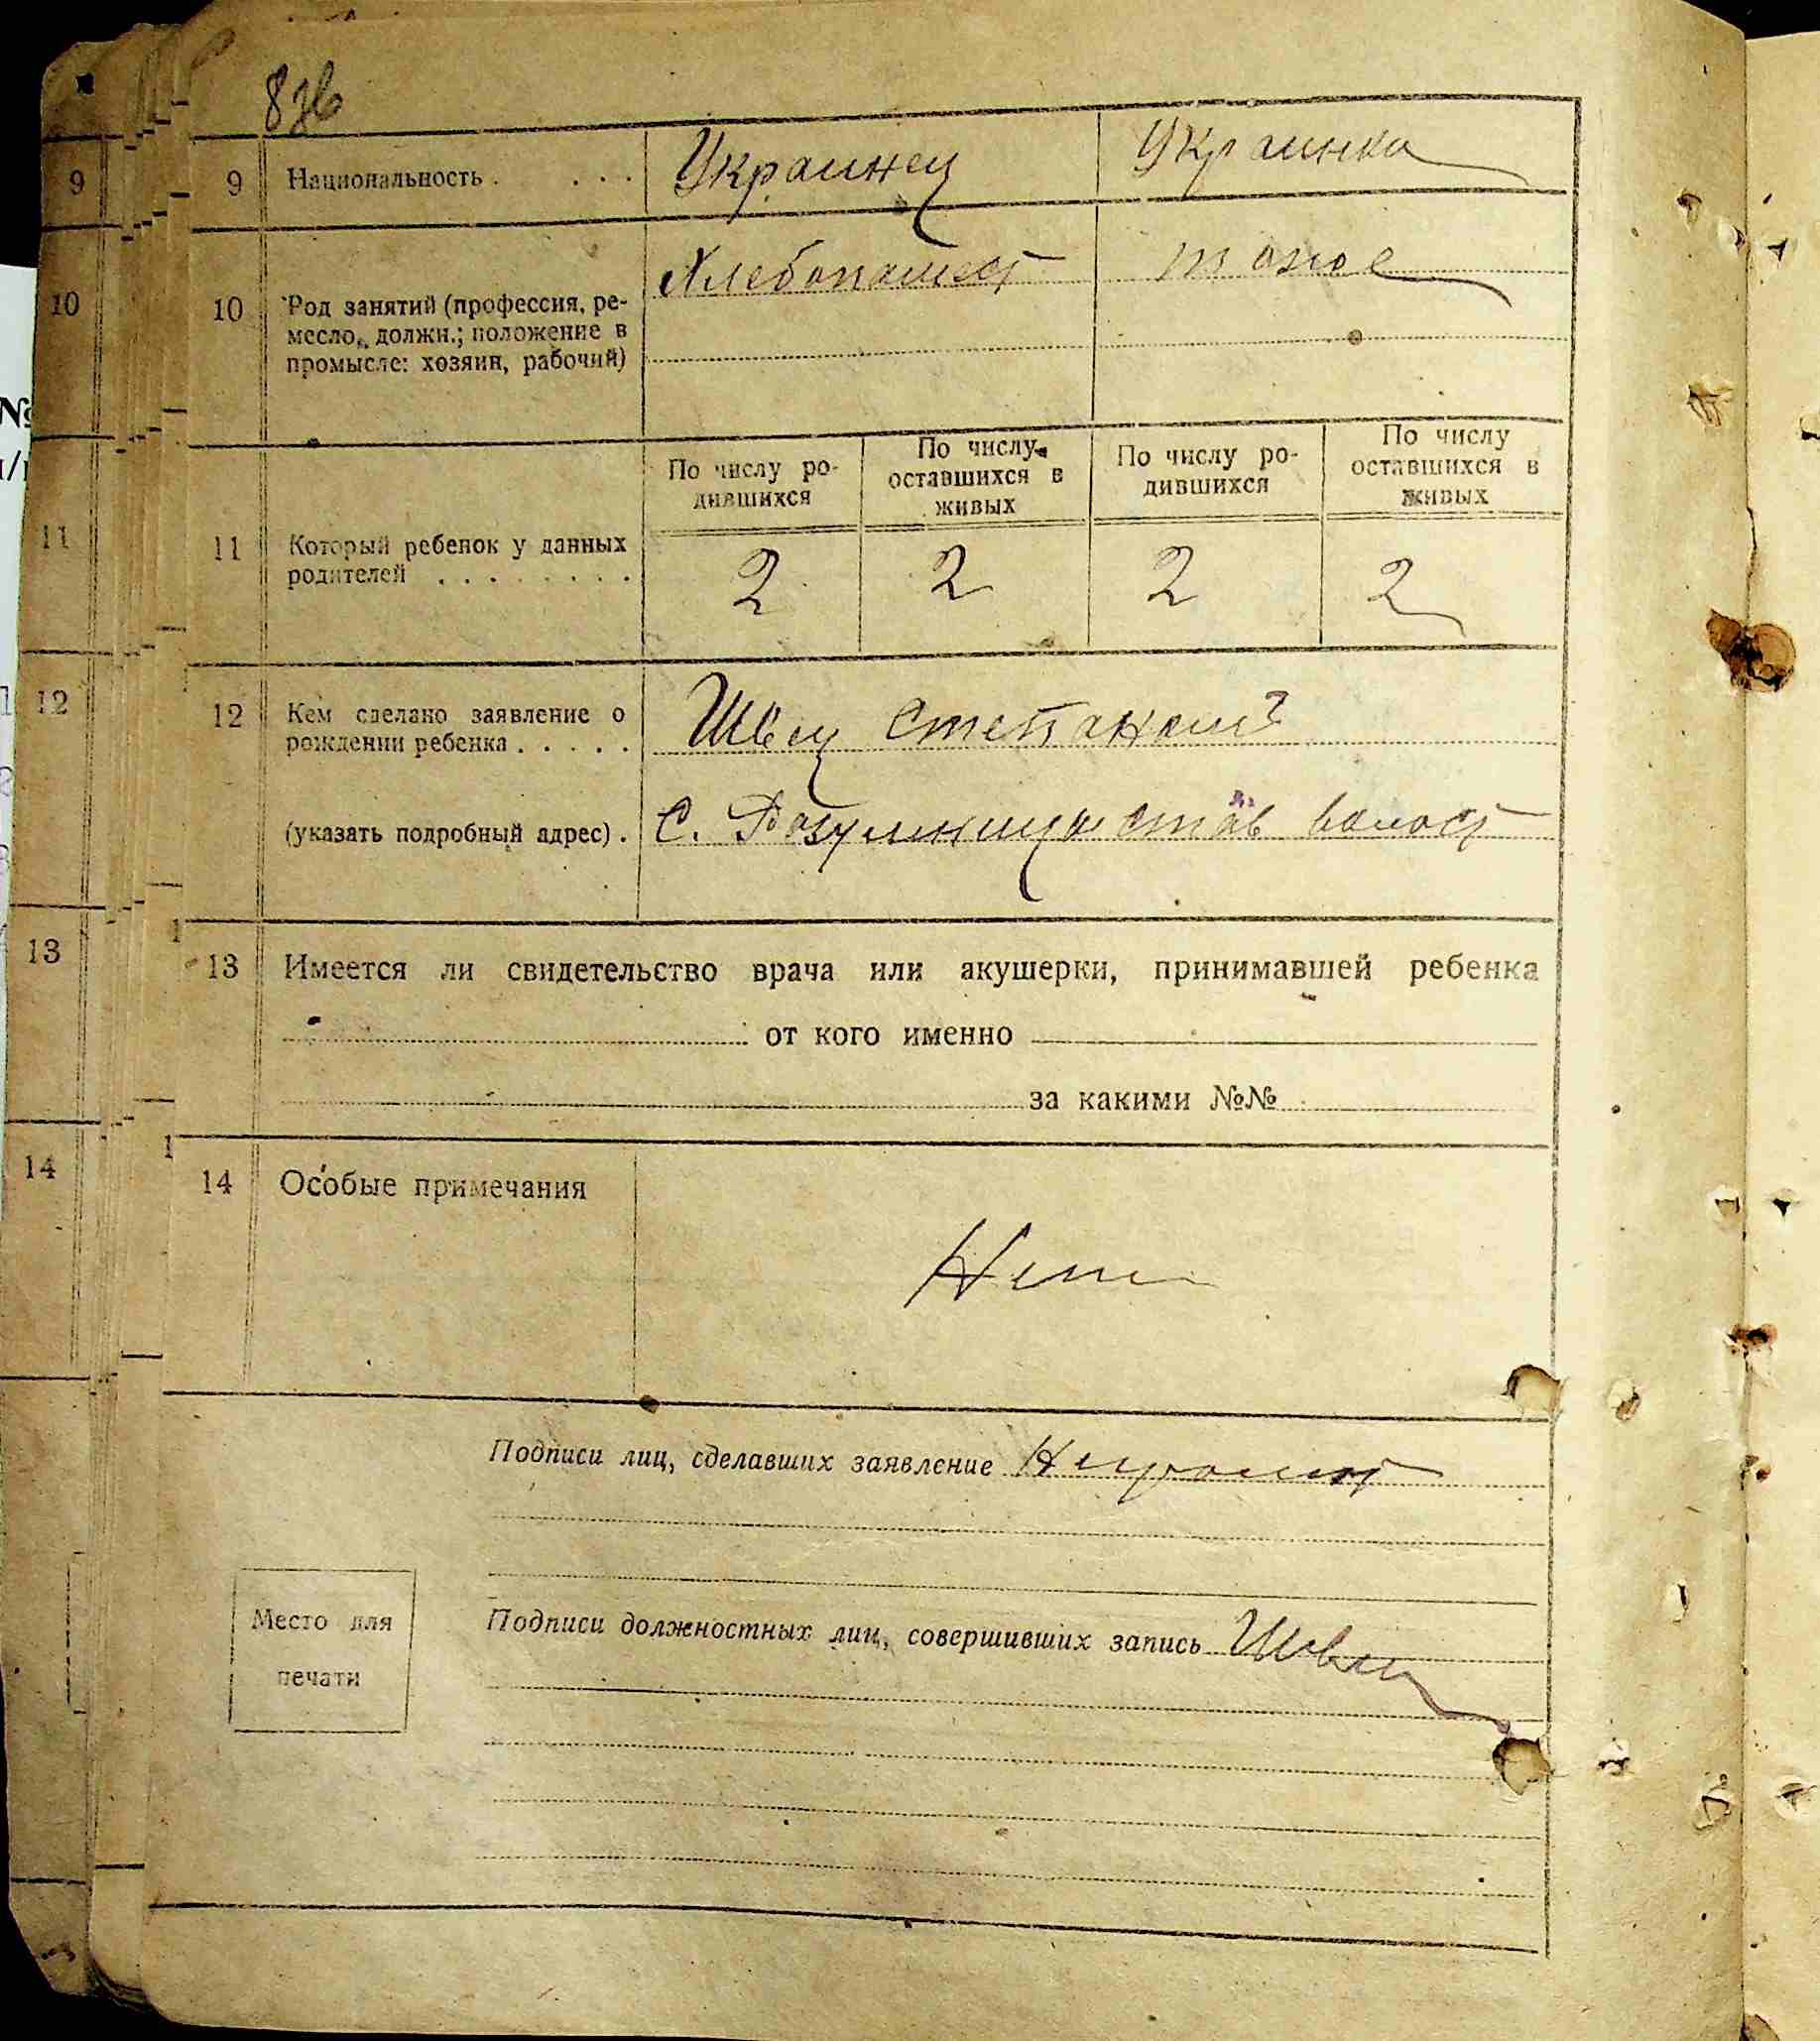 9 Национальность . . . . Украинец Украинка
10 Род занятий (профессия, ре-
месло, должн.; положение в
промысле: хозяин, рабочий)
Хлебопашест тоже
По числу ро-
дившихся
По числу
оставшихся в
живых
По числу ро-
дившихся
По числу
оставшихся в
живых
11 Который ребенок у данных
родителей . . . . . . . .
2 2 2 2
12 Кем сделано заявление о
рождении ребенка . . . . .
Швец
(указать подробный адрес) . С. волост
13 Имеется ли свидетельство врача или акушерки, принимавшей ребенка
от кого именно
за какими №№
14 Особые примечания
Нет
Подписи лиц, сделавших заявление
Место для
печати
Подписи должностных лиц, совершивших запись
9
10
11
12
13
14